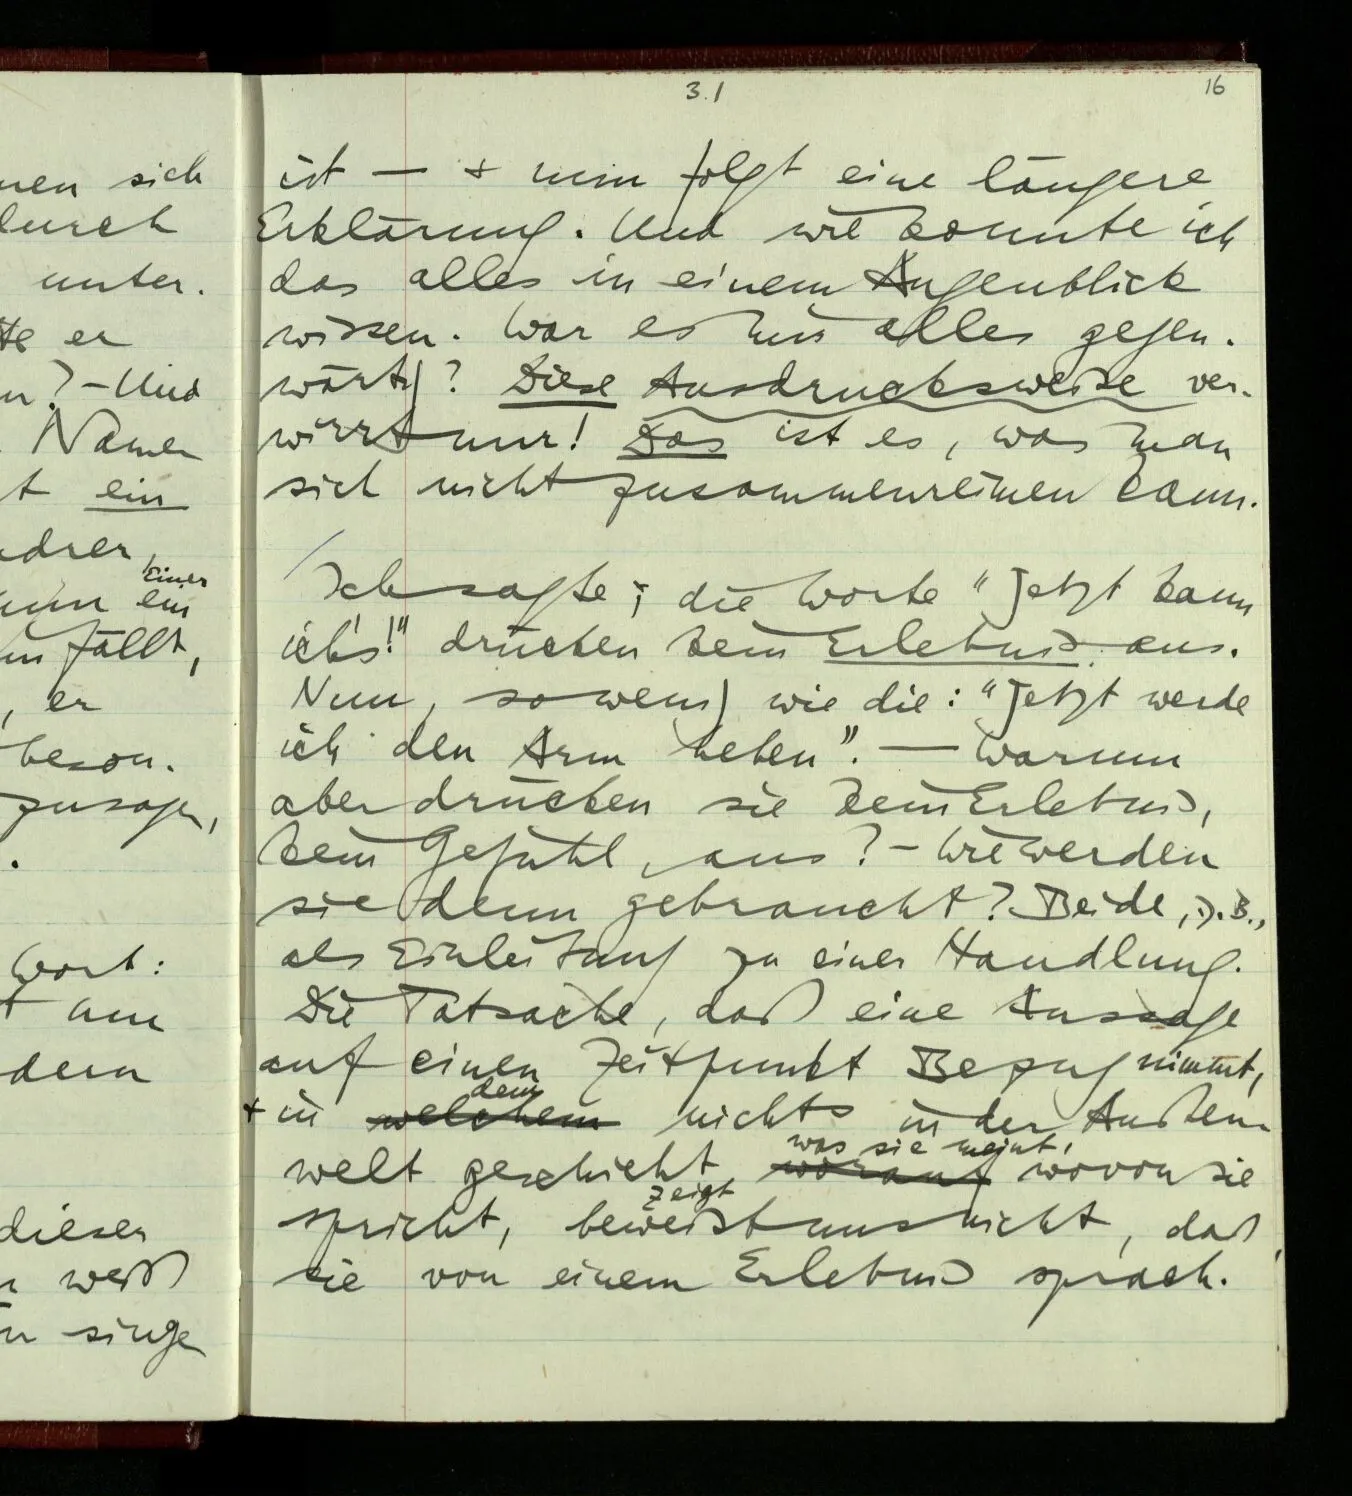 nen sich
durch
unter.
er
? – Und
Namen
ein
einer
ein
fällt,
, er
beson.
zusagen,
Wort:
dern
dieser
weiß
singe
3.1
16
ist — + nun folgt eine längere
Erklärung. Und wie konnte ich
das alles in einem Augenblick
wissen. War es mir alles gegen-
wärtig? Diese Ausdrucksweise ver-
wirrt nur! Das ist es, was man
sich nicht zusammenreimen kann.
/
Ich sagte; die Worte "Jetzt kann
ich's!" drücken kein Erlebnis aus.
Nun, sowenig wie die: "Jetzt werde
ich den Arm heben". — Warum
aber drücken sie kein Erlebnis,
kein Gefühl, aus? – Wie werden
sie denn gebraucht? Beide, z.B.,
als Einleitung zu einer Handlung.
Die Tatsache, daß eine Aussage
auf einen Zeitpunkt Bezug nimmt,
dem
+ in welchem nichts in der Außen-
was sie meint,
welt geschieht, worauf wovon sie
zeigt
spricht, beweist uns nicht, daß
sie von einem Erlebnis sprach.